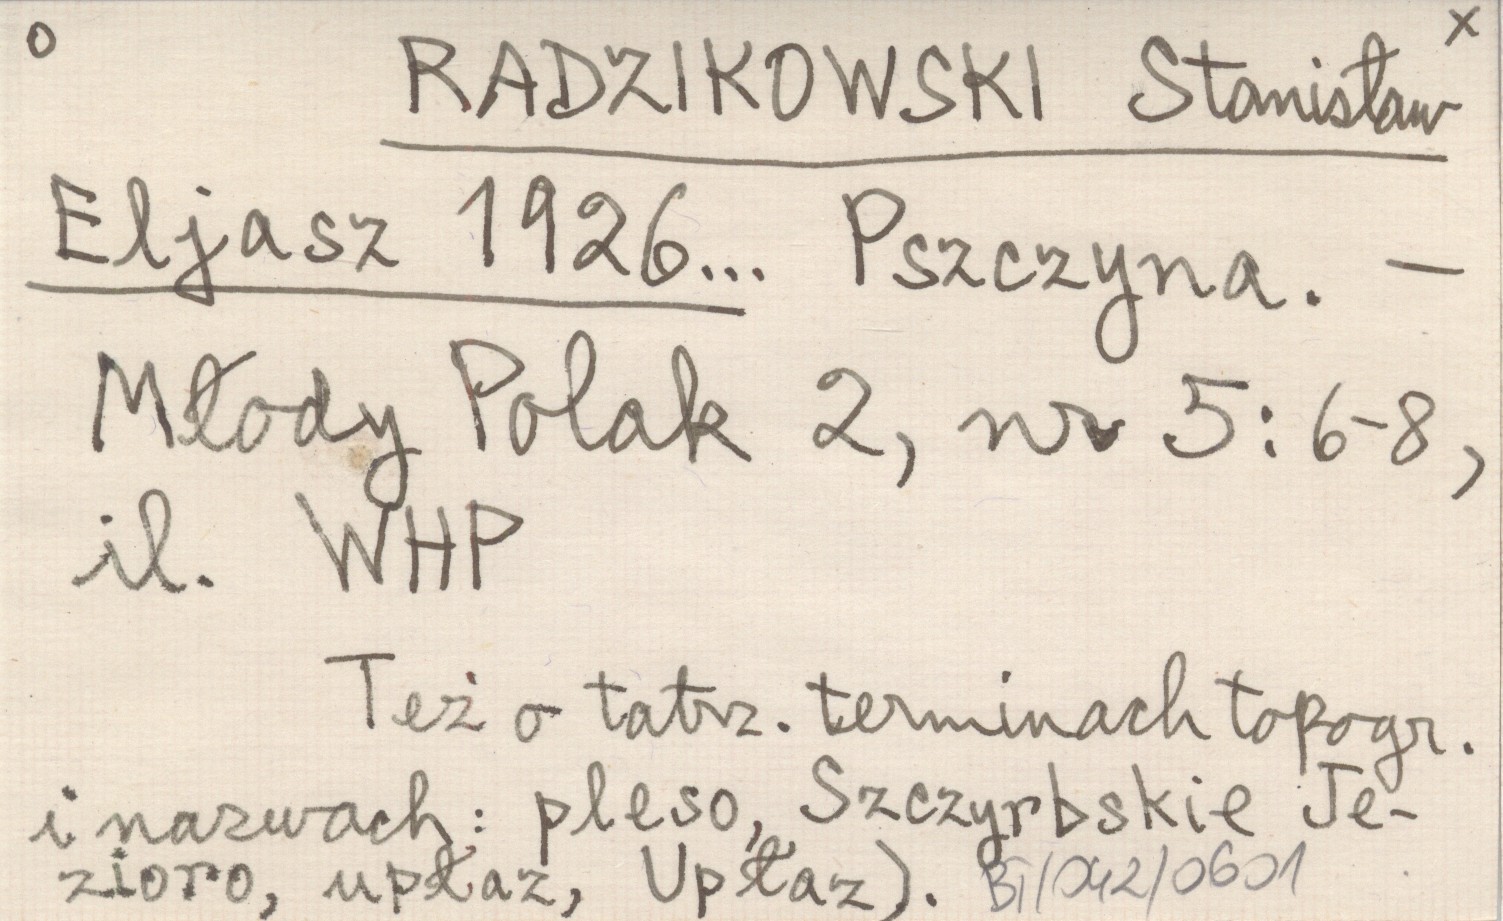 o x
RADZIKOWSKI Stanisław
Eljasz 1926... Pszczyna. —
Młody Polak 2, nr 5: 6-8,
il. WHP
Też o tatrz. terminach topogr.
i nazwach: pleso, Szczyrbskie Je-
zioro, upłaz, Upłaz). BI/042/0601